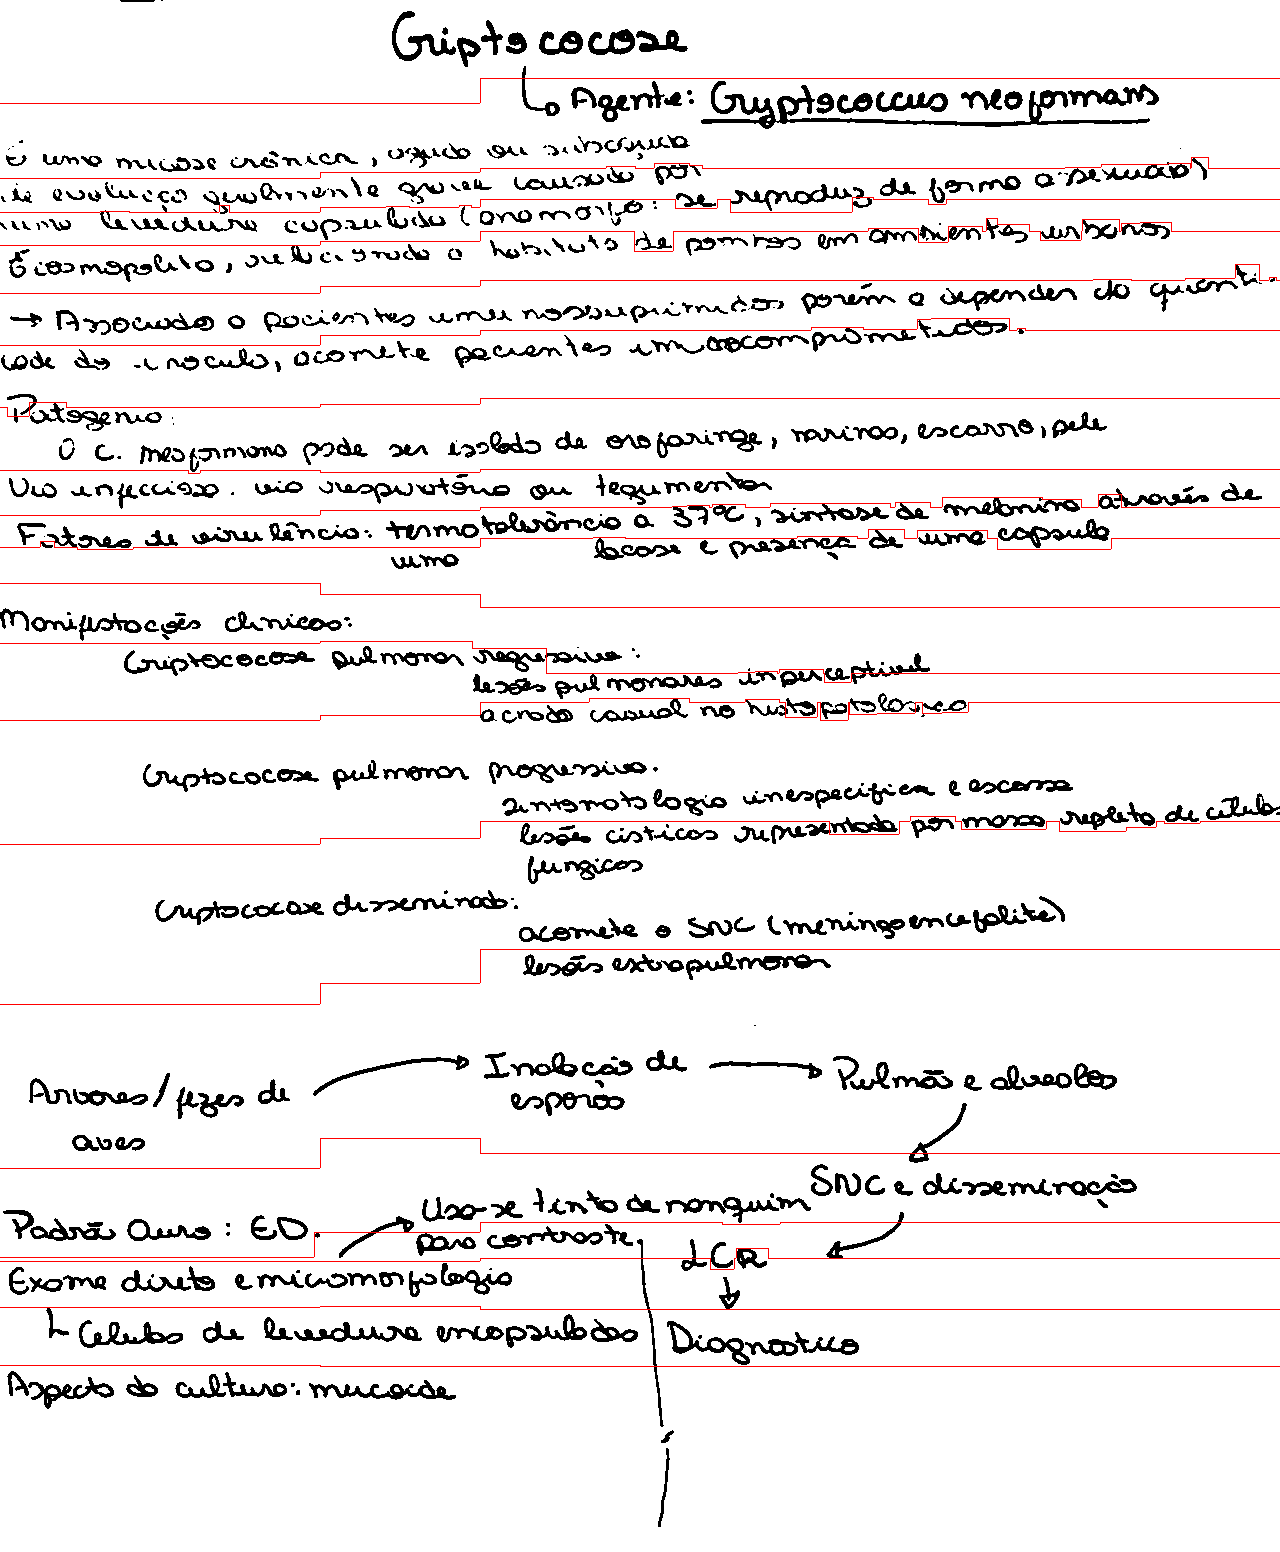 Criptococose
↳ Agente: Cryptococcus neoformans
É uma micose crônica, aguda ou subaguda
de evolução geralmente grave causada por
uma levedura capsulada (anamorfo: se reproduz de forma assexuada)
É cosmopolita, relacionada a habitats de pombos em ambientes urbanos
→ Associada a pacientes imunossuprimidos porém a depender da quanti-
dade do inoculo, acomete pacientes imunocomprometidos.
Patogenia:
O C. neoformans pode ser isolado de orofaringe, narinas, escarro, pele
Via infecciosa: via respiratória ou tegumentar
Fatores de virulência: termotolerância a 37°C, síntese de melanina através de
uma lacase e presença de uma capsula
Manifestações clinicas:
Criptococose pulmonar regressiva:
lesões pulmonares imperceptivel
acrado casual no histopatológico
Criptococose pulmonar progressiva.
sintomatologia inespecifica e escassa
lesões císticas representada por massa repleta de células
fungicas
Criptococose disseminada:
acomete o SNC (meningoencefalite)
lesões extrapulmonar
Arvores/fezes de
aves
Inalação de
esporos
Pulmão e alveolos
SNC e disseminação
LCR
Diagnostico
Padrão Ouro: ED.
Usa-se tinta de nanquim
para contraste.
Exame direto e micromorfologia
↳ Celulas de levedura encapsuladas
Aspecto da cultura: mucoide